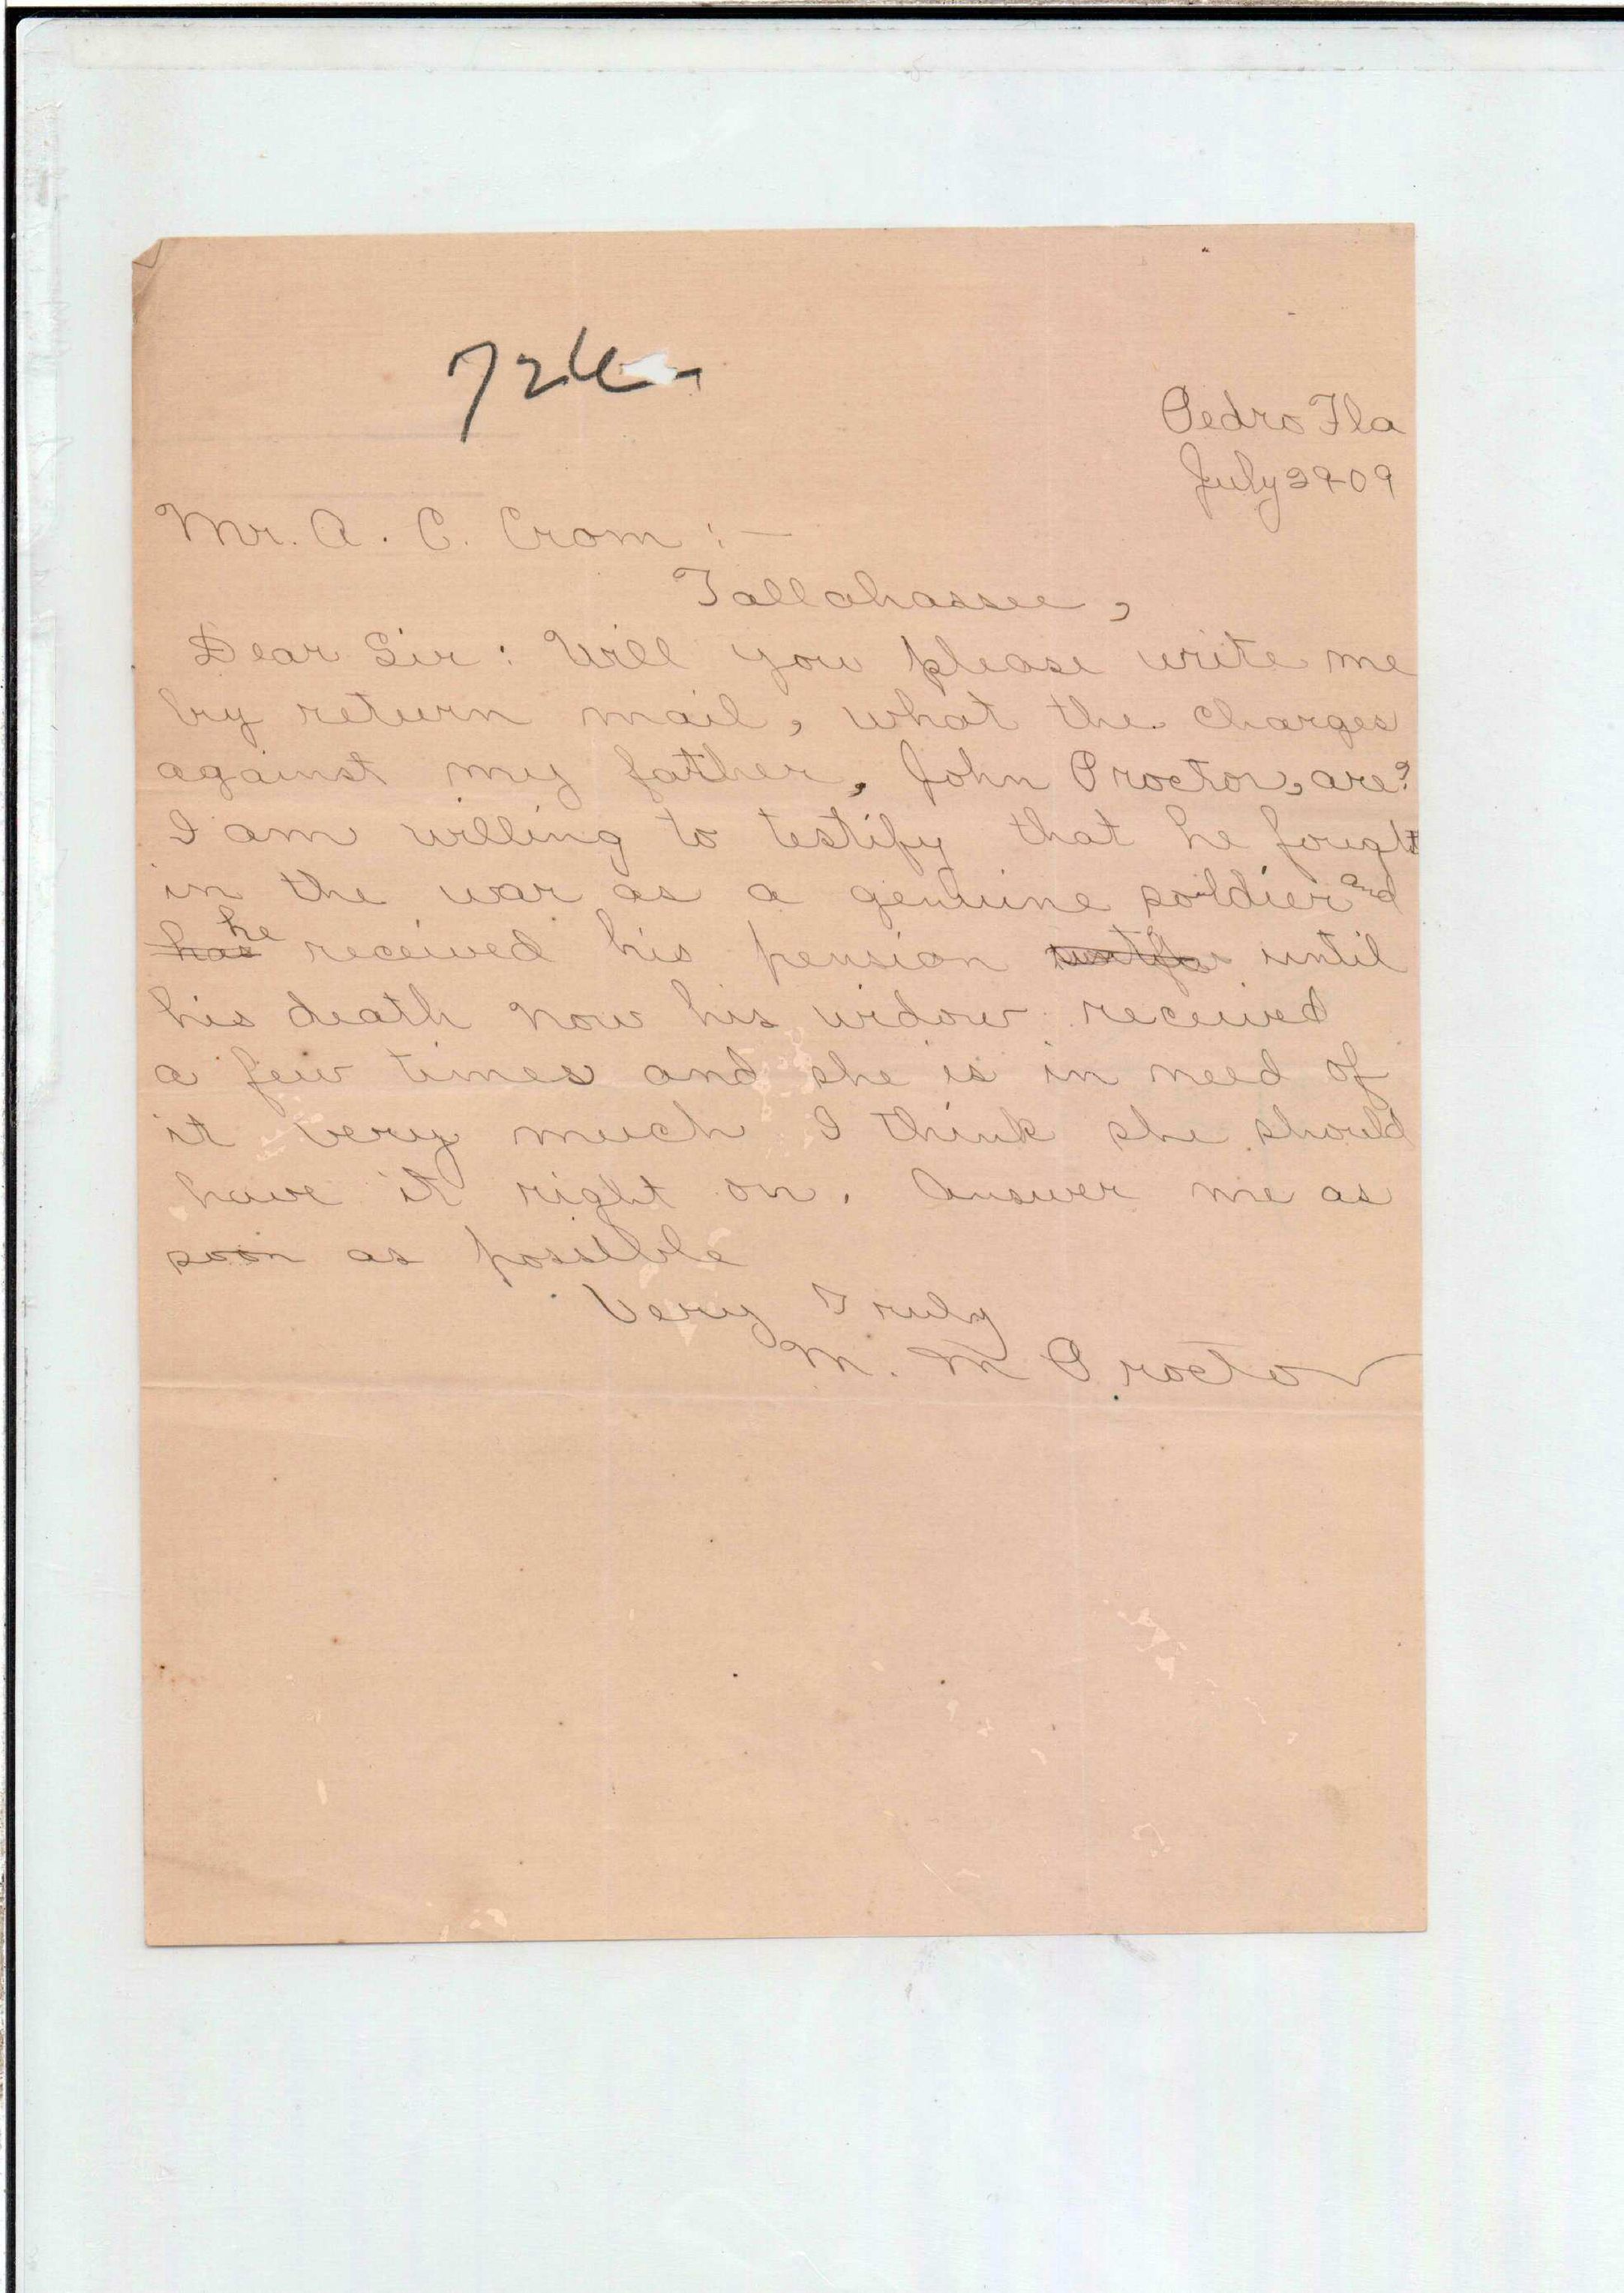 Pedro Fla
July 29-09
Mr. A. C. Crom :—
Tallahassee,
Dear Sir: Will you please write me
by return mail, what the charges
against my father, John Proctor, are?
I am willing to testify that he fought
in the war as a genuine soldier and
has he received his pension until
his death now his widow received
a few times and she is in need of
it very much I think she should
have it right on. Answer me as
soon as possible
Very Truly
M. M Proctor